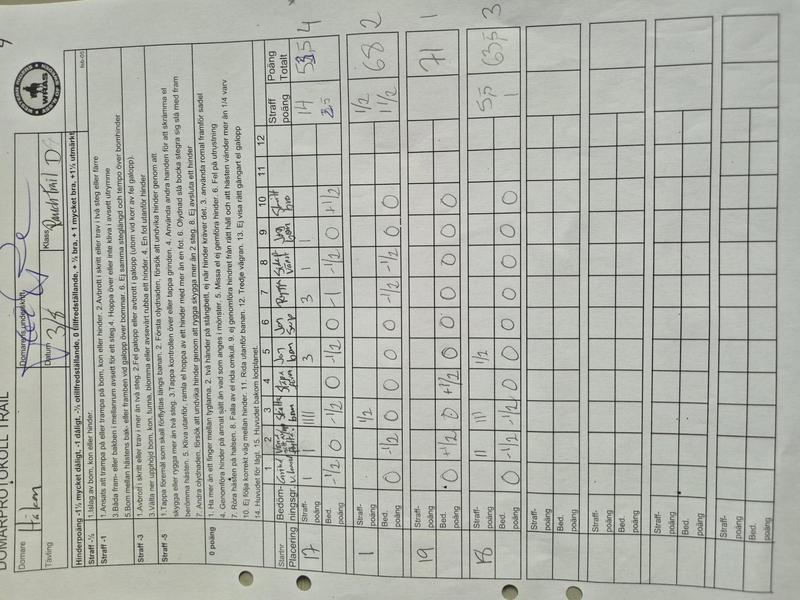 DOMARPROTOKOLL TRAIL
Domare Håkan
Domarens underskrift
WRAS
Tävling
Datum 3/8
Klass Ranch Trail D
feb-05
Hinderpoäng -1½ mycket dåligt, -1 dåligt, -½ otillfredställande, 0 tillfredställande, + ½ bra, + 1 mycket bra, +1½ utmärkt
Straff -½ 1.Islag av bom, kon eller hinder.
Straff -1 1.Ansats att trampa på eller trampa på bom, kon eller hinder. 2.Avbrott i skritt eller trav i två steg eller färre
3.Båda fram- eller bakben i mellanrum avsett för ett steg 4. Hoppa över eller inte kliva i avsett utrymme
5.Bom mellan hästens bak- eller framben vid galopp över bommar. 6. Ej samma steglängd och tempo över bomhinder
Straff -3 1.Avbrott i skritt eller trav i mer än två steg. 2.Fel galopp eller avbrott i galopp (utom vid korr av fel galopp).
3.Välta ner upphöjd bom, kon, tunna, blomma eller avsevärt rubba ett hinder. 4. En fot utanför hinder
Straff -5 1.Tappa föremål som skall förflyttas längs banan. 2. Första olydnaden, försök att undvika hinder genom att
skygga eller rygga mer än två steg. 3.Tappa kontrollen över eller tappa grinden. 4. Använda andra handen för att skrämma el
berömma hästen. 5. Kliva utanför, ramla el hoppa av ett hinder med mer än en fot. 6. Olydnad slå bocka stegra sig slå med fram
7. Andra olydnaden, försök att undvika hinder genom att rygga skygga mer än 2 steg. 8. Ej avsluta ett hinder
0 poäng 1. Ha mer än ett finger mellan tyglarna. 2. två händer på stångbett, ej när hinder kräver det. 3. använda romal framför sadel
4. Genomföra hinder på annat sätt än vad som anges i mönster. 5. Missa el ej gemföra hinder. 6. Fel på utrustning
7. Röra hästen på halsen. 8. Falla av el rida omkull. 9. ej genomföra hindret från rätt håll och att hästen vänder mer än 1/4 varv
10. Ej följa korrekt väg mellan hinder. 11. Rida utanför banan. 12. Tredje vägran. 13. Ej visa rätt gångart el galopp
14. Huvudet för lågt. *15. Huvudet bakom lodplanet.
Startnr Placering Bedöm-ningsgr 1 2 3 4 5 6 7 8 9 10 11 12 Straff poäng Poäng Totalt
17 Straff-poäng 1 1 |||| 3 3 1 1 14 4
Bed. poäng -1/2 0 -1/2 0 -1/2 0 -1 -1/2 0 +1/2
1 Straff-poäng 1/2 1/2 68 2
Bed. poäng 0 -1/2 0 0 0 0 -1/2 -1/2 0 0 1 1/2
19 Straff-poäng 71 1
Bed. poäng 0 +1/2 0 +1/2 0 0 0 0 0 0
18 Straff-poäng || ||| 1/2 5,5 63,5 3
Bed. poäng 0 -1/2 -1/2 0 0 0 0 0 0 0 1
Straff-poäng
Bed. poäng
Straff-poäng
Bed. poäng
Straff-poäng
Bed. poäng
Straff-poäng
Bed. poäng